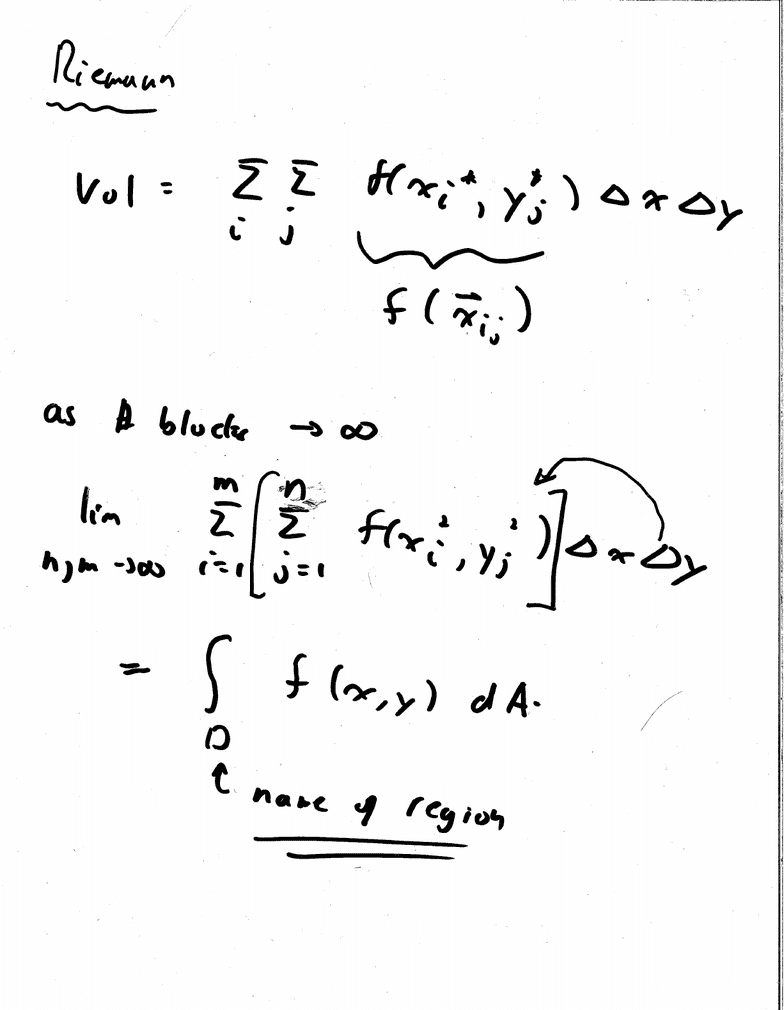 Riemann
Vol = Σ_i Σ_j f(x_i*, y_j*) Δx Δy
f(x⃗_ij)
as # blocks → ∞
lim_{n,m→∞} Σ_{i=1}^{m} [ Σ_{j=1}^{n} f(x_i^*, y_j^*) ] Δx Δy
= ∫_D f(x,y) dA.
↑ name of region